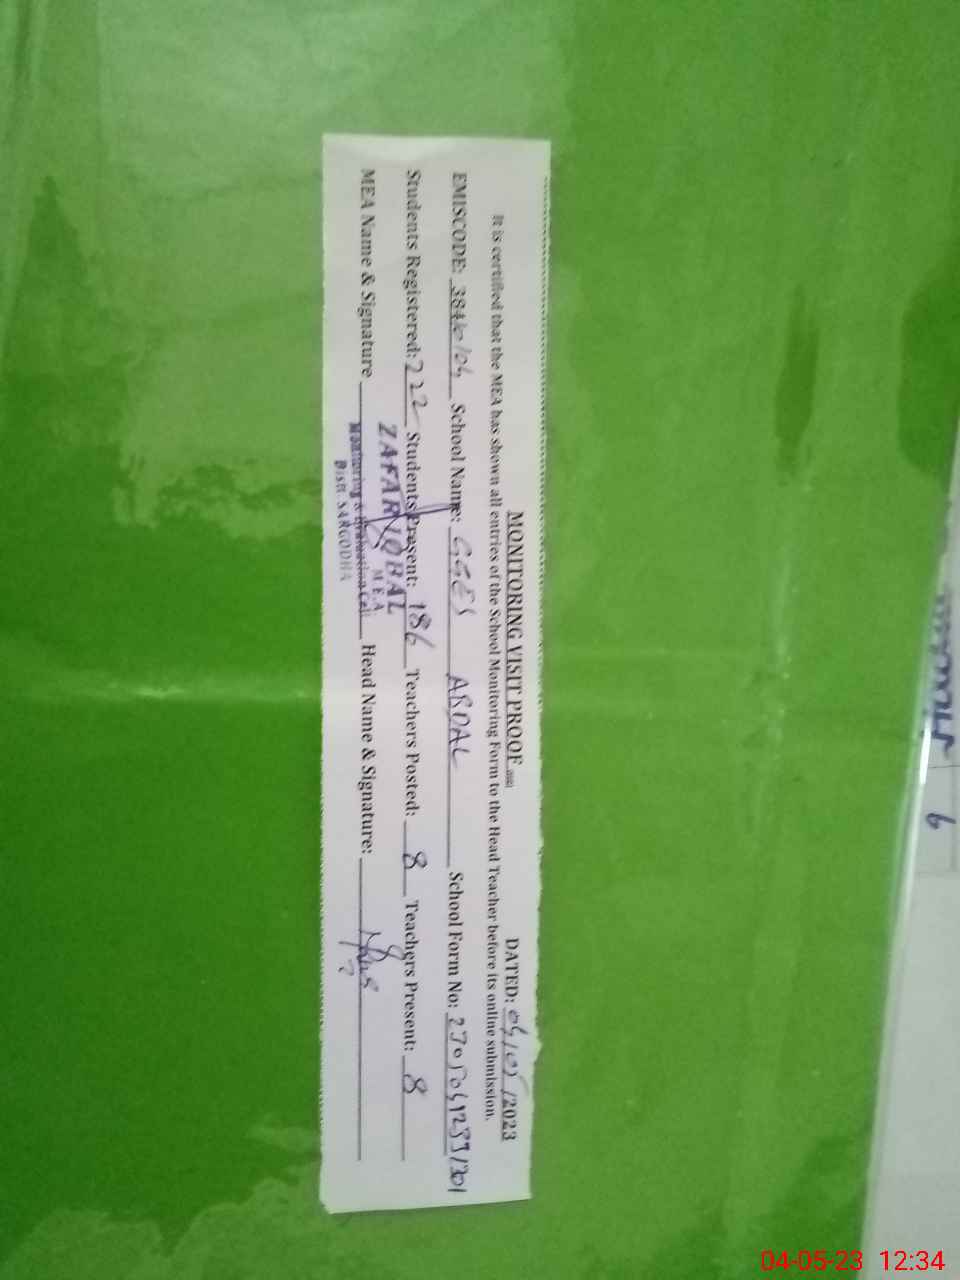 MONITORING VISIT PROOF
DATED: 04/05/2023
It is certified that the MEA has shown all entries of the School Monitoring Form to the Head Teacher before its online submission.
EMISCODE: School Name: GGES ABDAL School Form No:
Students Registered: 222 Students Present: 186 Teachers Posted: 8 Teachers Present: 8
MEA Name & Signature Head Name & Signature:
ZAFAR IQBAL
M.E.A
Monitoring & Evaluation Cell
Distt. SARGODHA
6
04-05-23 12:34